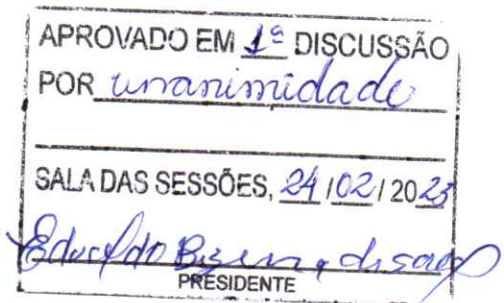 APROVADO EM 1ª DISCUSSÃO
POR unanimidade
SALA DAS SESSÕES, 24 / 02 / 2023
PRESIDENTE